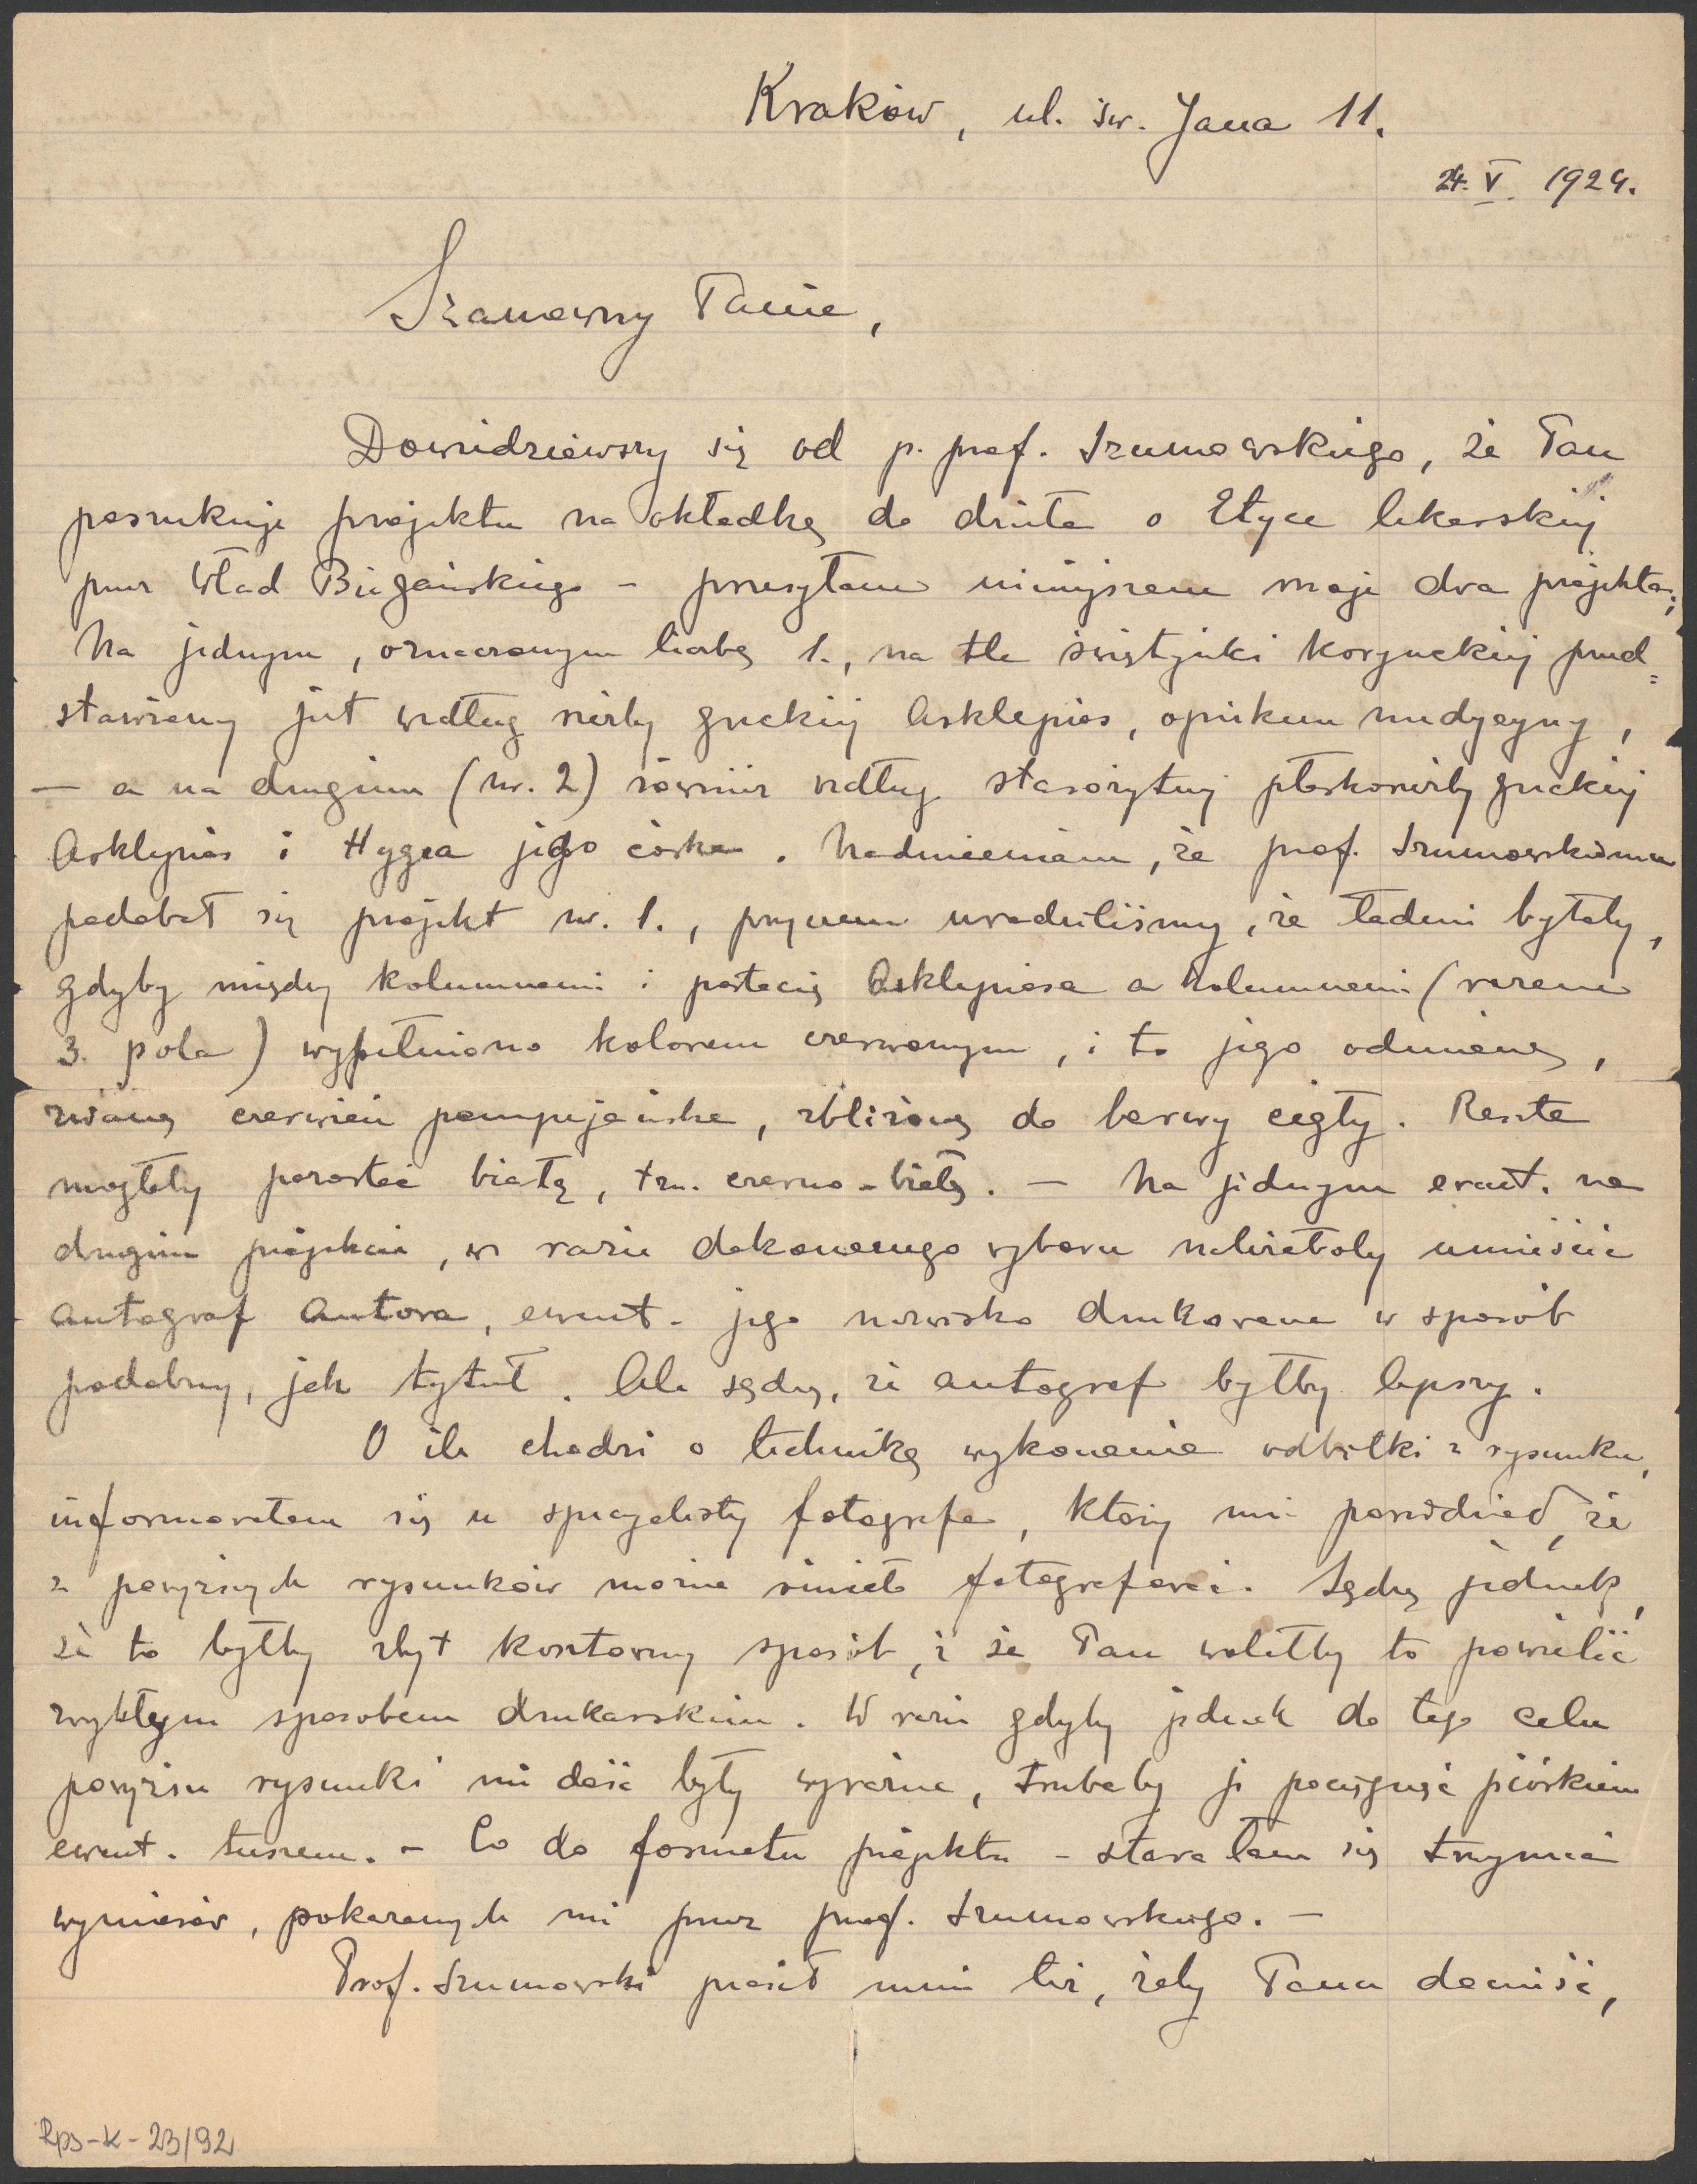 Kraków, ul. św. Jana 11.
24. V. 1924.
Szanowny Panie,
Dowiedziawszy się od p. prof. Szumowskiego, że Pan
poszukuje projektu na okładkę do dzieła o Etyce lekarskiej
przez Wład Biegańskiego - przesyłam niniejszem moje dwa projekta;
Na jednym, oznaczonym liczbą 1., na tle świątyńki korynckiej przed=
stawiony jest według rzeźby greckiej Asklepios, opiekun medycyny,
— a na drugim (nr. 2) również według starożytnej płaskorzeźby greckiej
Asklepios i Hygea jego córka. Nadmieniam, że prof. Szumowskiemu
podobał się projekt nr. 1., przyczem uradziliśmy, że ładnie byłoby,
gdyby między kolumnami i postacią Asklepiosa a kolumnami (razem
3. pola) wypełniono kolorem czerwonym, i to jego odmianą,
zwaną czerwień pompejańska, zbliżoną do barwy cegły. Reszta
mogłaby pozostać białą, tzn. czarno-białą. — Na jednym ewent. na
drugim projekcie, w razie dokonanego wyboru należałoby umieścić
autograf Autora, ewent. jego nazwisko drukowane w sposób
podobny, jak tytuł. Ale sądzę, że autograf byłby lepszy.
O ile chodzi o technikę wykonania odbitki z rysunku,
informowałam się u specjalisty fotografa, który mi powiedział, że
z powyższych rysunków można śmiało fotografować. Sądzę jednak,
że to byłby zbyt kosztowny sposób, i że Pan wolałby to powielić
zwykłym sposobem drukarskim. W razie gdyby jednak do tego celu
powyższe rysunki nie dość były wyraźne, trzebaby je pociągnąć piórkiem
ewent. tuszem. - Co do formatu projektu - starałam się trzymać
wymiarów, pokazanych mi przez prof. Szumowskiego. —
Prof. Szumowski prosił mnie też, żeby Panu donieść,
Rps-K-23/92